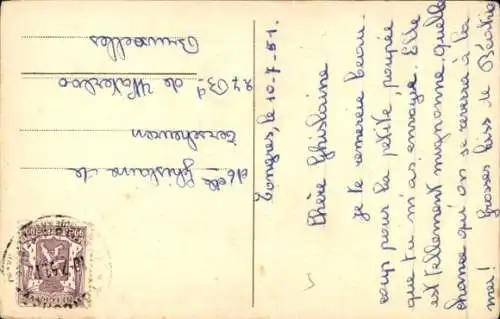 Tongres, le 10-7-51.
Chère Ghislaine
je te remercie beau-
coup pour la petite poupée
que tu m'as envoyé. Elle
est tellement mignonne. Quelle
chance qu'on se reverra à la
mer! Grosses bises de Béatrice
Ghislaine de
27 Bd de Waterloo
Bruxelles